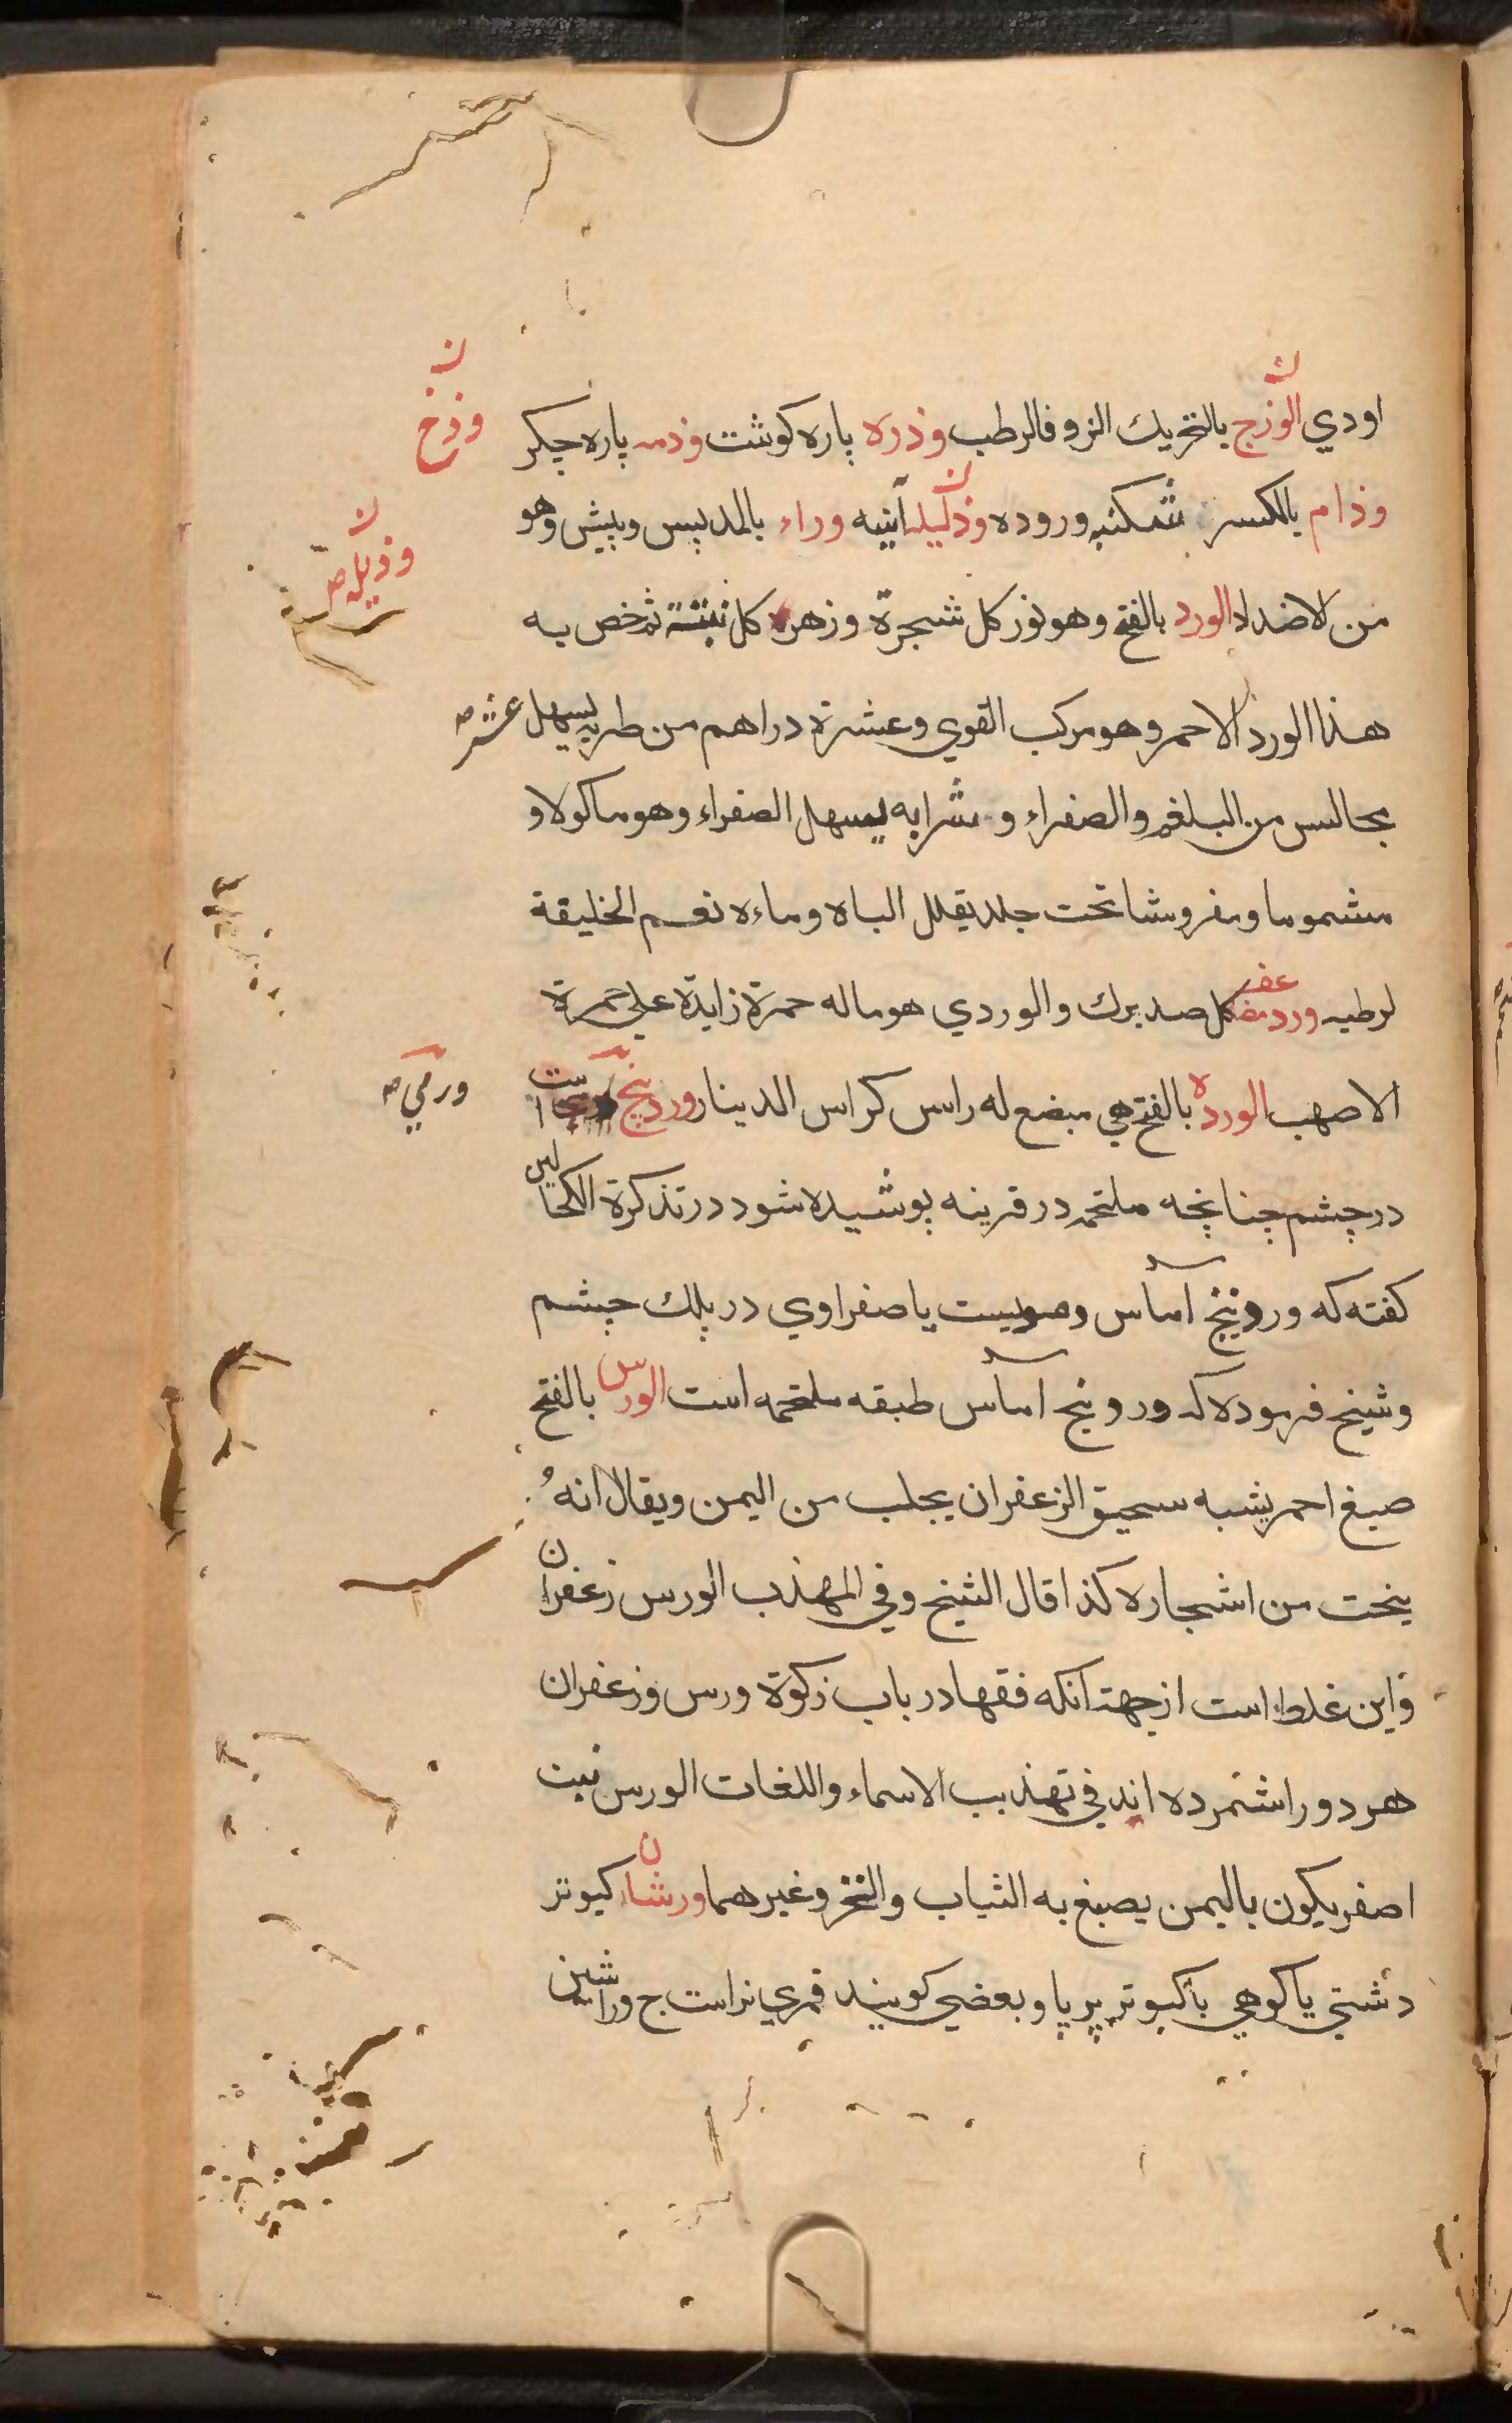 اودي الوذج بالتحريك الزوفا الرطب وذره پاره كوشت وذمه پاره جكر
وذح
وذام بالكسر شكنبه وروده وذليله آينه وراء بالمد پس وپيش وهو
وذيله ص
من الاضداد الورد بالفتح وهو نور كل شجرة وزهرة كل نبتة ثم خص به
هذا الورد الاحمر وهو مركب القوي وعشرة دراهم من طريه يسهل عشر ص
مجالس من البلغم والصفراء وشرابه يسهل الصفراء وهو ماكولا و
مشموما ومفروشا تحت جلد يقلل الباه وماءه نعم الخليقة
لرطبه ورد مضعف كل صد برك والوردي هو ماله حمرة زايدة علي حمرة
الاصهب الورده بالفتح هي مبضع له راس كراس الدينار وردينج است
ورمي ص
در چشم چنانچه ملتحمه در قرينه پوشيده شود در تذكرة الكحالين
كفته كه وردينج آماس دمويست يا صفراوي در پلك چشم
وشيخ فرموده كه وردينج آماس طبقه ملتحمه است الورس بالفتح
صبغ احمر يشبه سحيق الزعفران يجلب من اليمن ويقال انهُ
ينحت من اشجاره كذا قال الشيخ وفي المهذب الورس زعفران
واين غلط است از جهت انكه فقها در باب زكوة ورس وزعفران
هر دو را شمرده اند في تهذيب الاسماء واللغات الورس نبت
اصفر يكون باليمن يصبغ به الثياب والخز وغيرهما ورشان كبوتر
دشتي يا كوهي يا كبوتر پرپا وبعضي كويند قمري نر است ج وراشين